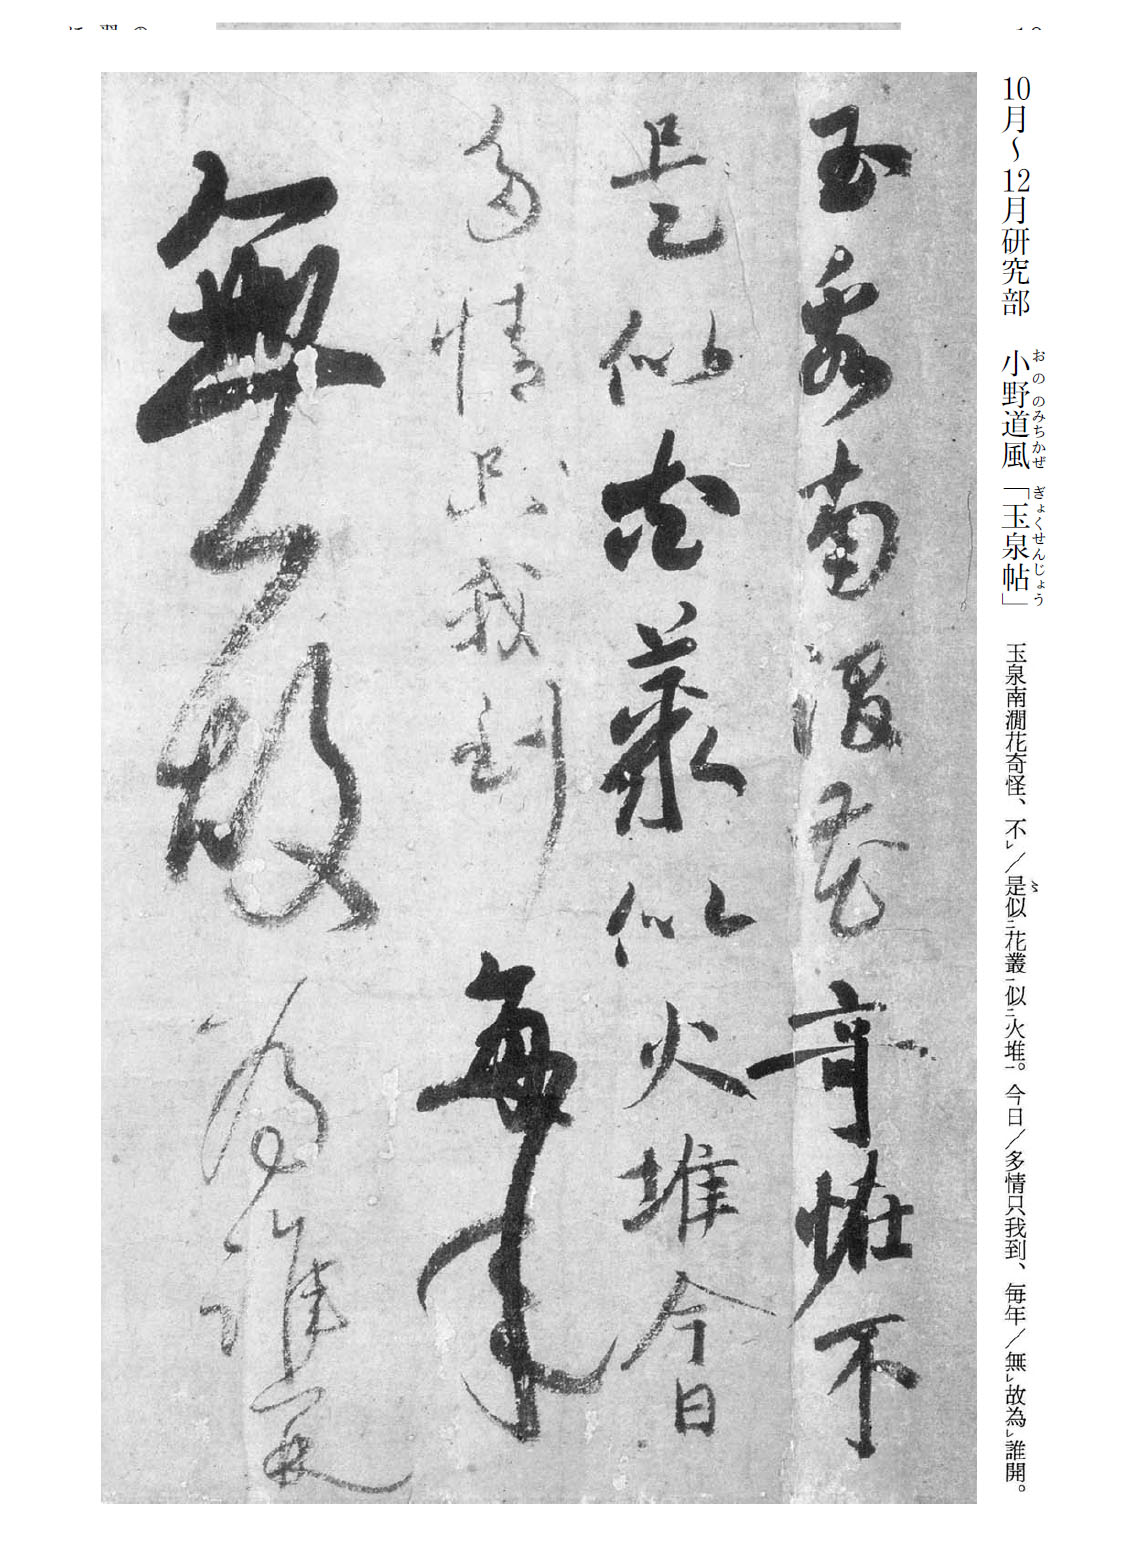 10月〜12月研究部　小野道風「玉泉帖」　玉泉南澗花奇怪、不レ／是似ニ花叢一似ニ火堆一。今日／多情只我到、毎年／無レ故為レ誰開。
おののみちかぜ　ぎょくせんじょう
玉泉南澗花奇怪不
是似花叢似火堆今日
多情只我到毎年
無故為誰開